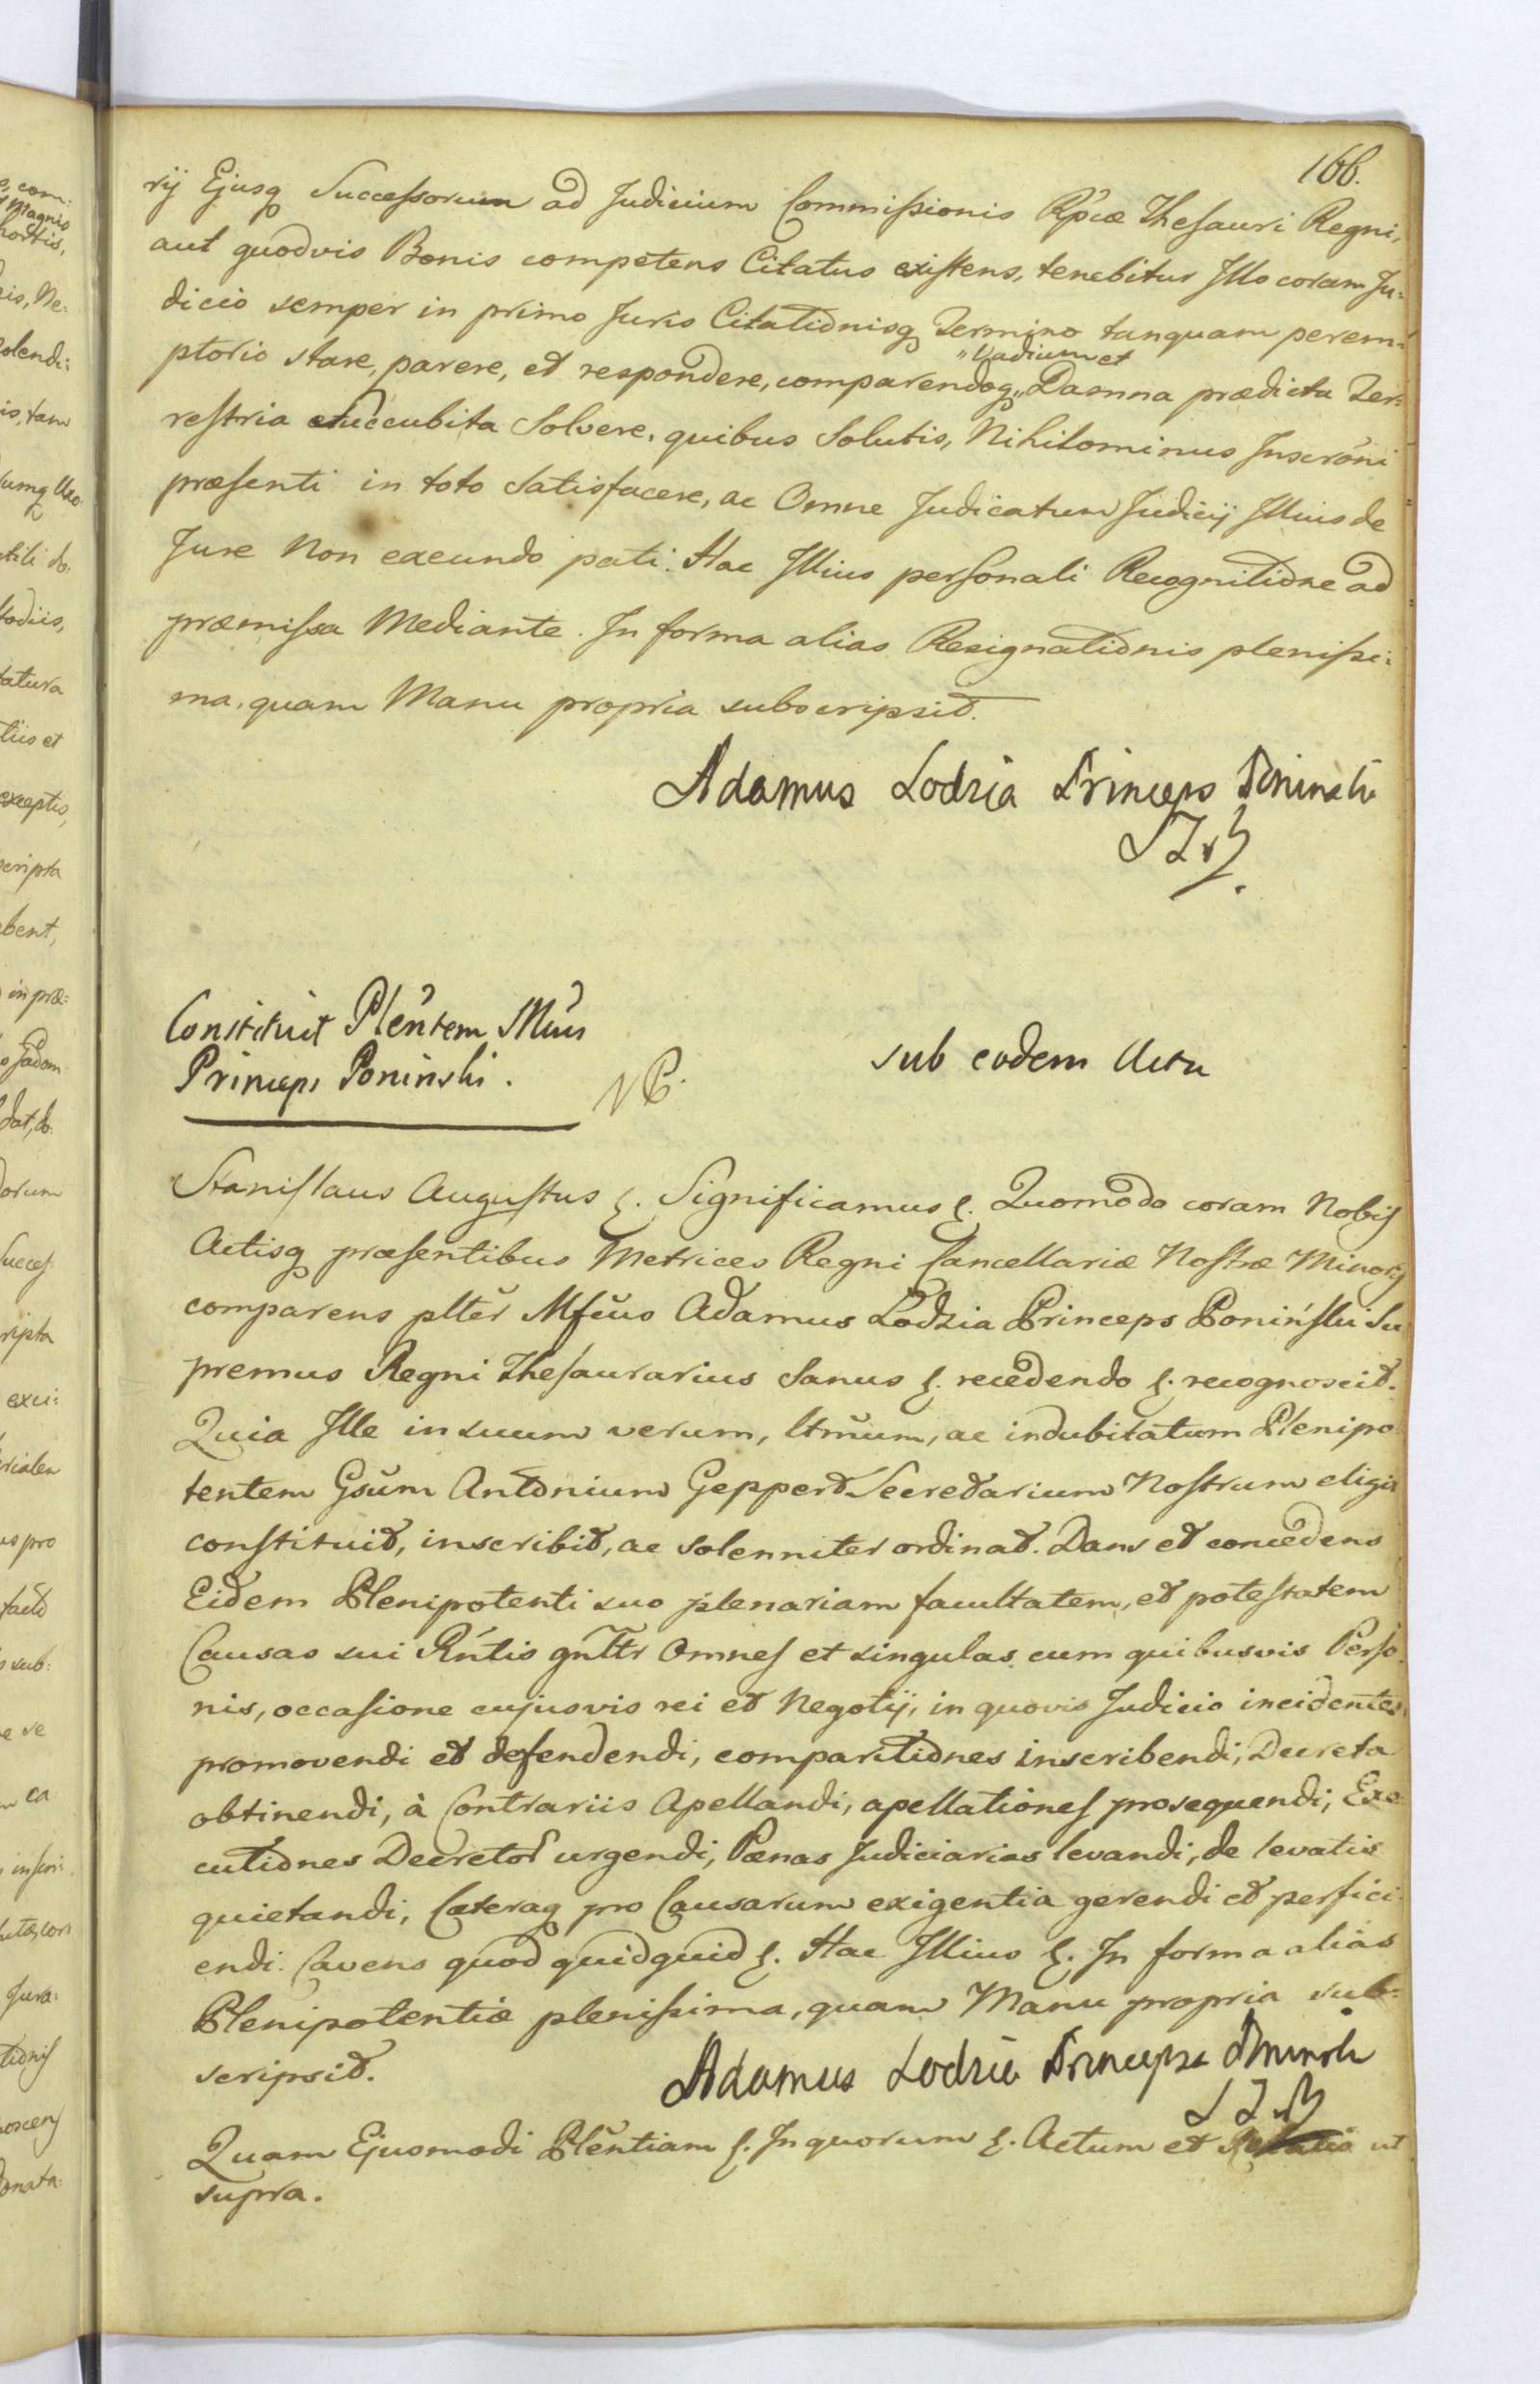 166.
rij Ejusq Successorum ad Judicium Commissionis Rp̃cæ Thesauri Regni,
aut quodvis Bonis competens Citatus existens, tenebitur Illo coram Ju:
dicio semper in primo Juris Citationisq Termino tanquam perem:
"Vadium et
ptorio stare, parere, et respondere, comparendoq" Damna prædicta Ter:
restria succubita Solvere, quibus Solutis, Nihilominus Inscrõni
præsenti in toto Satisfacere, ac Omne Judicatum Judicij Illius de
Jure Non exeundo pati. Hac Illius personali Recognitione ad
præmissa Mediante. In forma alias Resignationis plenissi:
ma, quam Manu propria subscripsit.
Adamus Lodzia Princeps Poninski
Constituit Plẽntem Mus
Princeps Poninski.
NB.
sub eodem Actu
Stanislaus Augustus &. Significamus &. Quomodo coram Nobis
Actisq præsentibus Metrices Regni Cancellariæ Nostræ Minoris
comparens pltẽr Mfcus Adamus Lodzia Princeps Poniński Su
premus Regni Thesaurarius Sanus &. recedendo &. recognoscit.
Quia Ille in suum verum, ltmũm, ac indubitatum Plenipo
tentem Gsũm Antonium Geppert Secretarium Nostrum eligit
constituit, inscribit, ac solenniter ordinat. Dans et concedens
Eidem Plenipotenti suo plenariam facultatem, et potestatem
Causas sui Rntis gnltr Omnes et singulas cum quibusvis Perso
nis, occasione cujusvis rei et Negotij, in quovis Judicio incidentes
promovendi et defendendi, comparitiones inscribendi, Decreta
obtinendi, à Contrariis Apellandi, apellationes prosequendi, Exe
cutiones Decretor urgendi, Pænas Judiciarias levandi, de levatis
quietandi, Cæteraq pro Causarum exigentia gerendi et perfici
endi. Cavens quod quidquid &. Hac Illius &. In forma alias
Plenipotentiæ plenissima, quam Manu propria sub:
scripsit.
Adamus Lodzia Princeps Poninski
Quam Ejusmodi Plẽntiam &. In quorum &. Actum et ut
supra.